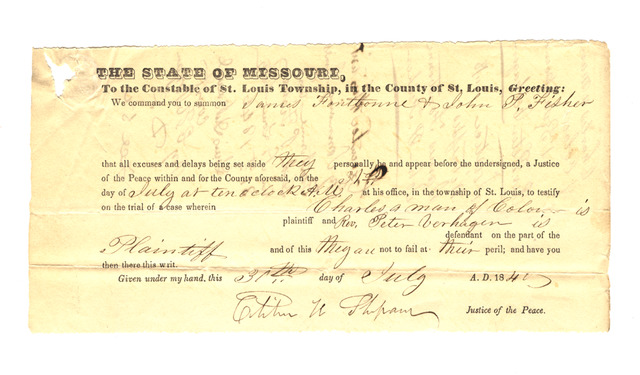 THE STATE OF MISSOURI,
To the Constable of St. Louis Township, in the County of St, Louis, Greeting:
We command you to summon James Fontbonne & John P. Fisher
that all excuses and delays being set aside they personally be and appear before the undersigned, a Justice
of the Peace within and for the County aforesaid, on the 31st
day of July at ten o'clock A.M. at his office, in the township of St. Louis, to testify
on the trial of a case wherein Charles a man of Colour is
plaintiff and Rev. Peter Verhagen is
defendant on the part of the
Plaintiff and of this they are not to fail at their peril; and have you
then there this writ.
Given under my hand, this 30th day of July A. D. 1840
Justice of the Peace.